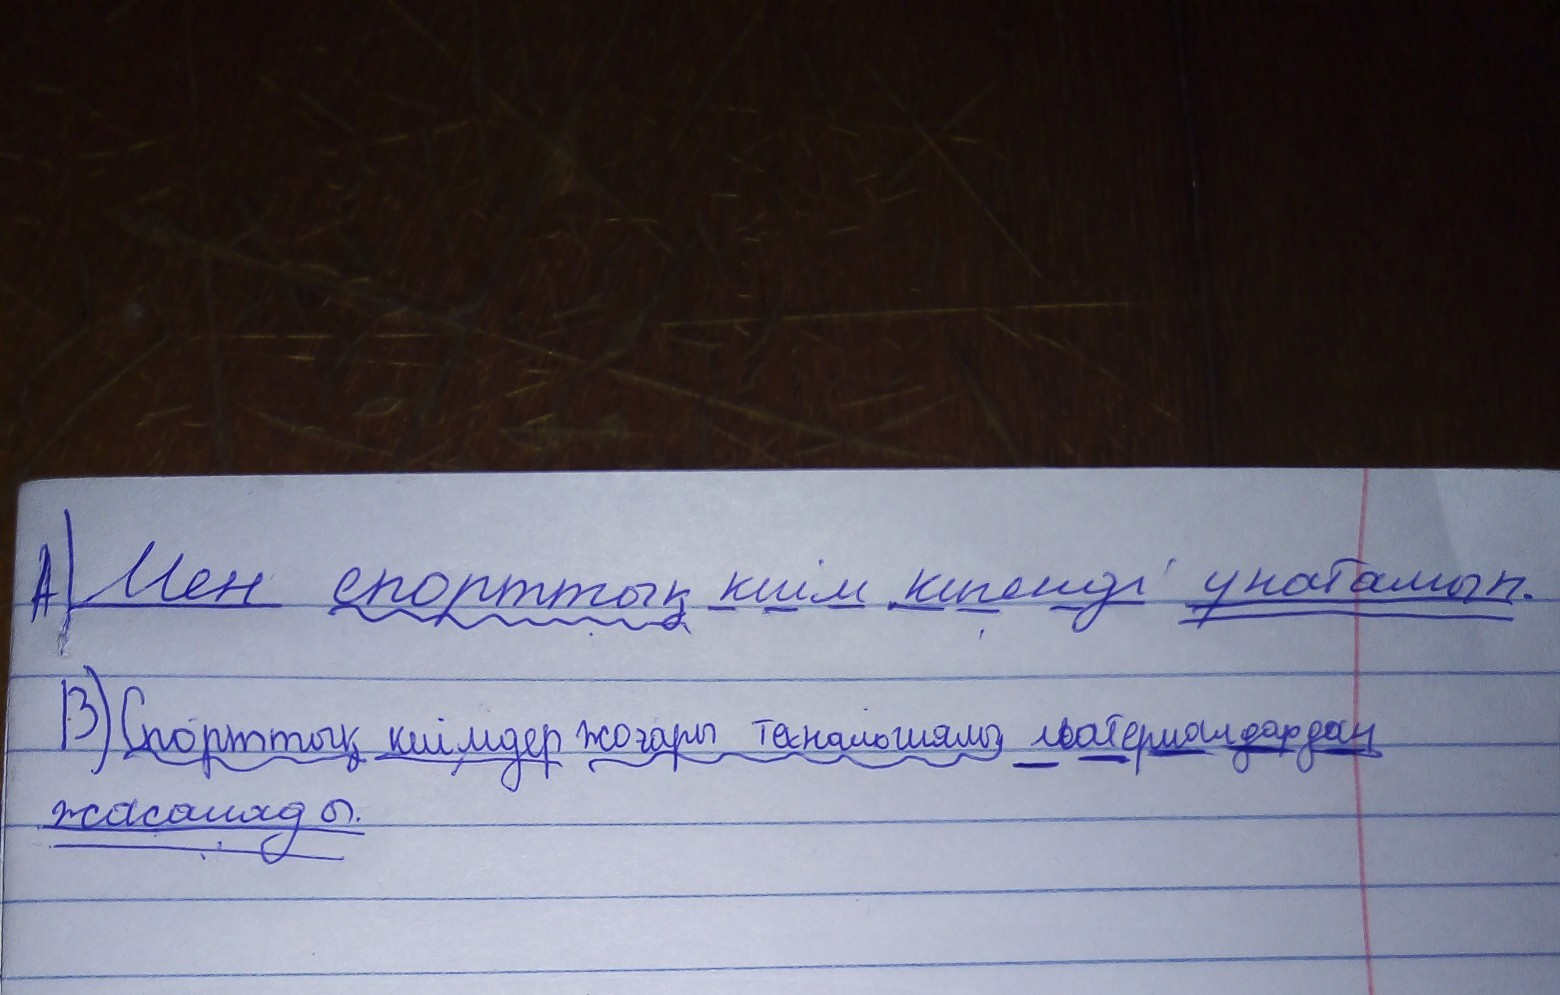 А) Мен спорттық киім кигенді ұнатамын.
В) Спорттық киімдер жоғары теналогиялық материалдардан
жасалады.